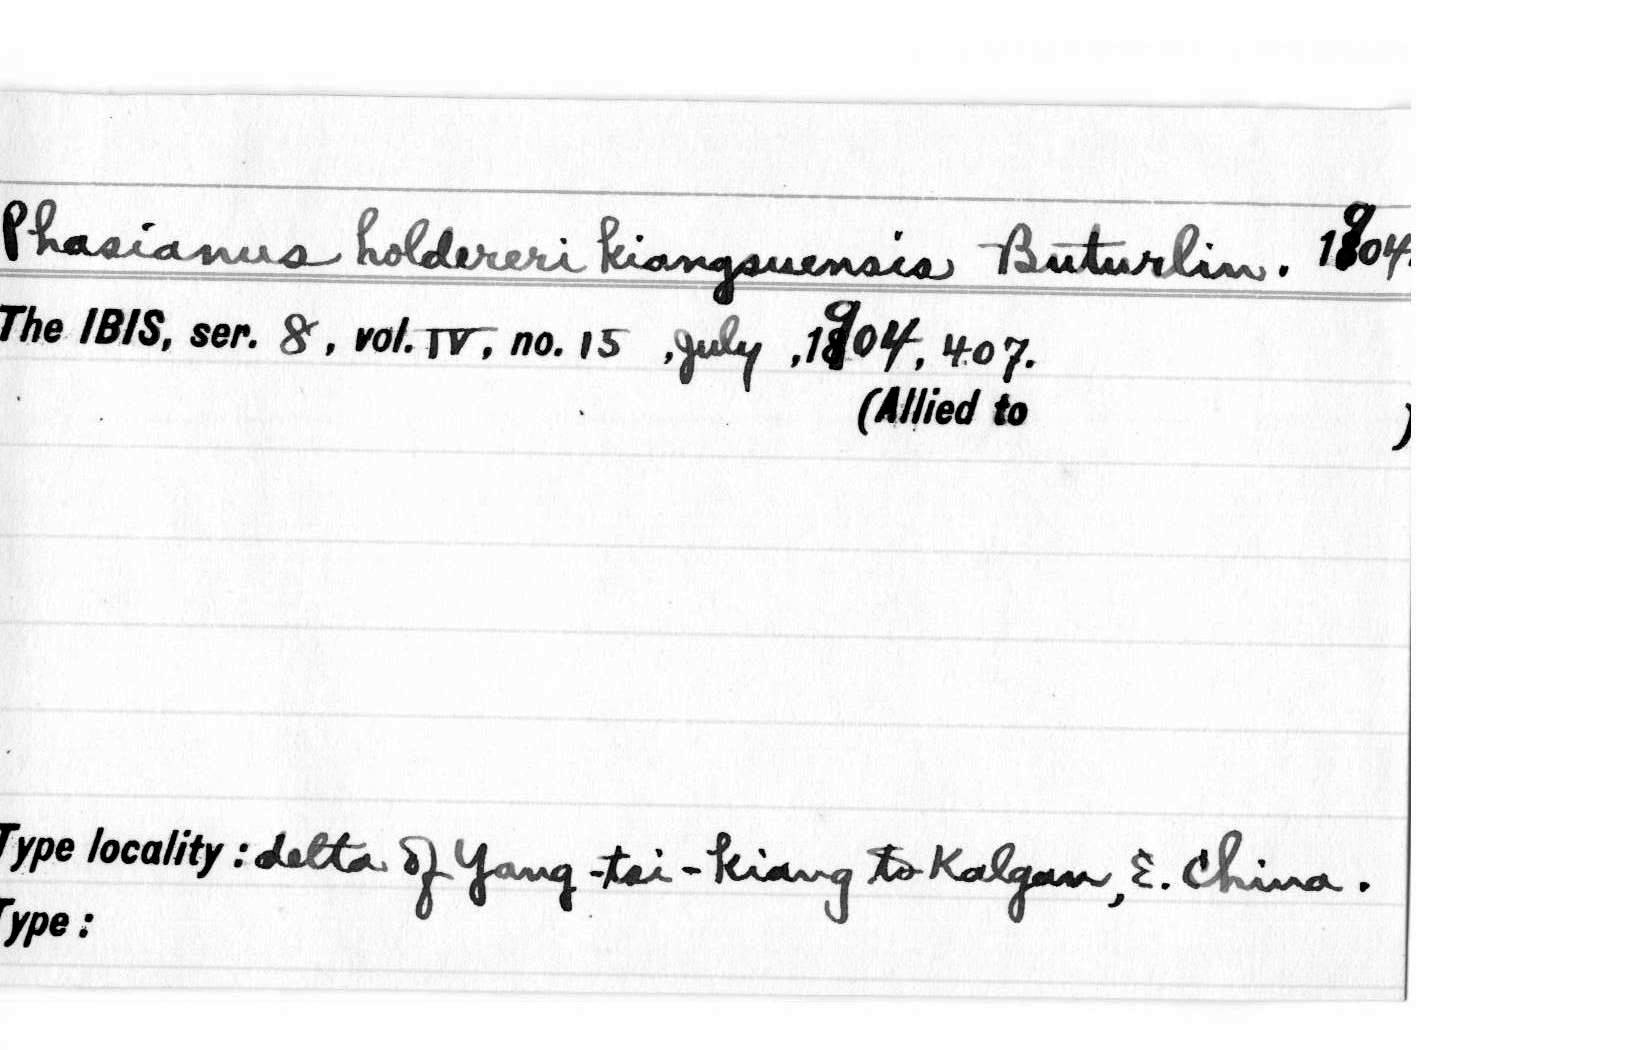 Phasianus holdereri kiangsuensis Buturlin. 1904.
The IBIS, ser. 8, vol. IV, no. 15, July, 1904, 407.
(Allied to )
Type locality: delta of Yang-tsi-kiang to Kalgan, E. China.
Type: